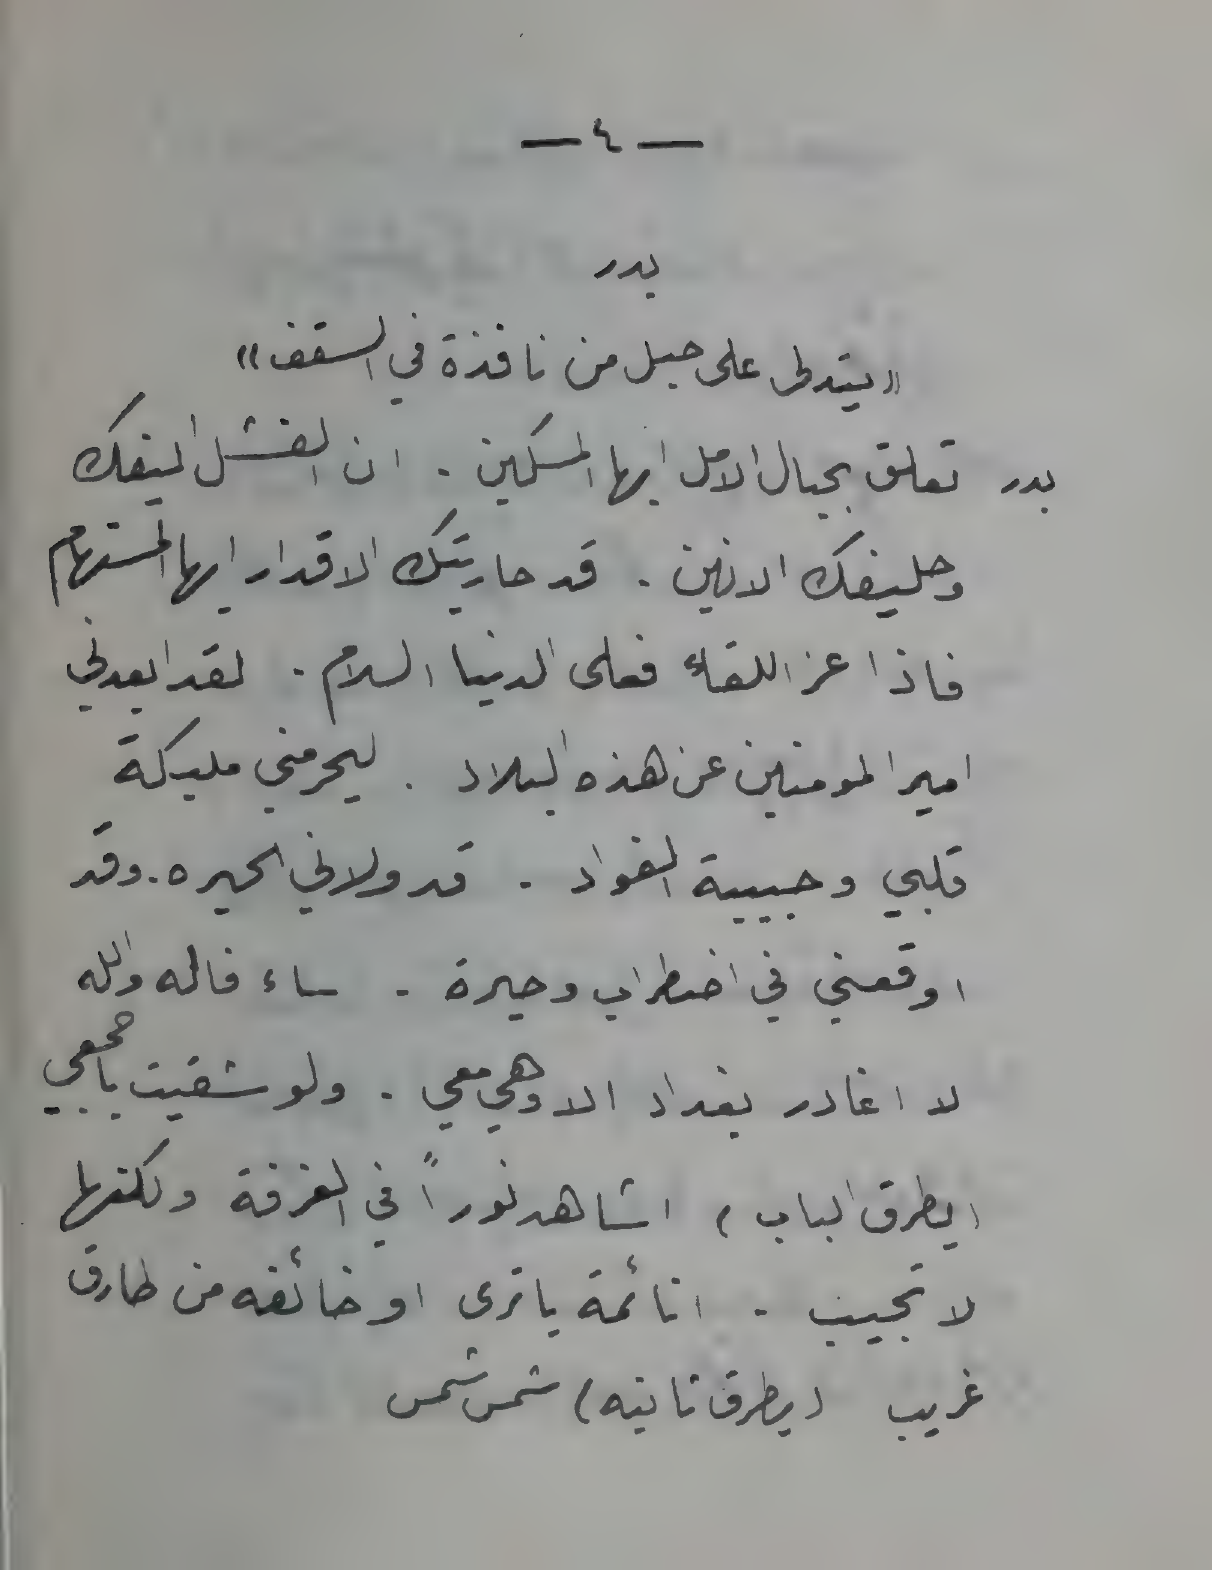 — ٤ —
بدر
«يتدلى على حبل من نافذة في السقف»
بدر تعلق بحبال الامل ايها المسكين . ان الفشل اليفك
وحليفك الانين . قد حاربتك الاقدار ايها المستهام
فاذا عز اللقاء فعلى الدنيا السلام . لقد ابعدني
امير المومنين عن هذه البلاد . ليحرمني مليكة
قلبي وحبيبة الفواد . قد ولاني الحيره . وقد
اوقعني في اضطراب وحيرة . ساء فاله والله
لا اغادر بغداد الا وهي معي . ولو شقيت باجمعي
(يطرق الباب) اشاهد نوراً في الغرفة ولكنها
لا تجيب . انائمة ياترى او خائفه من طارق
غريب (يطرق ثانيه) شمس شمس